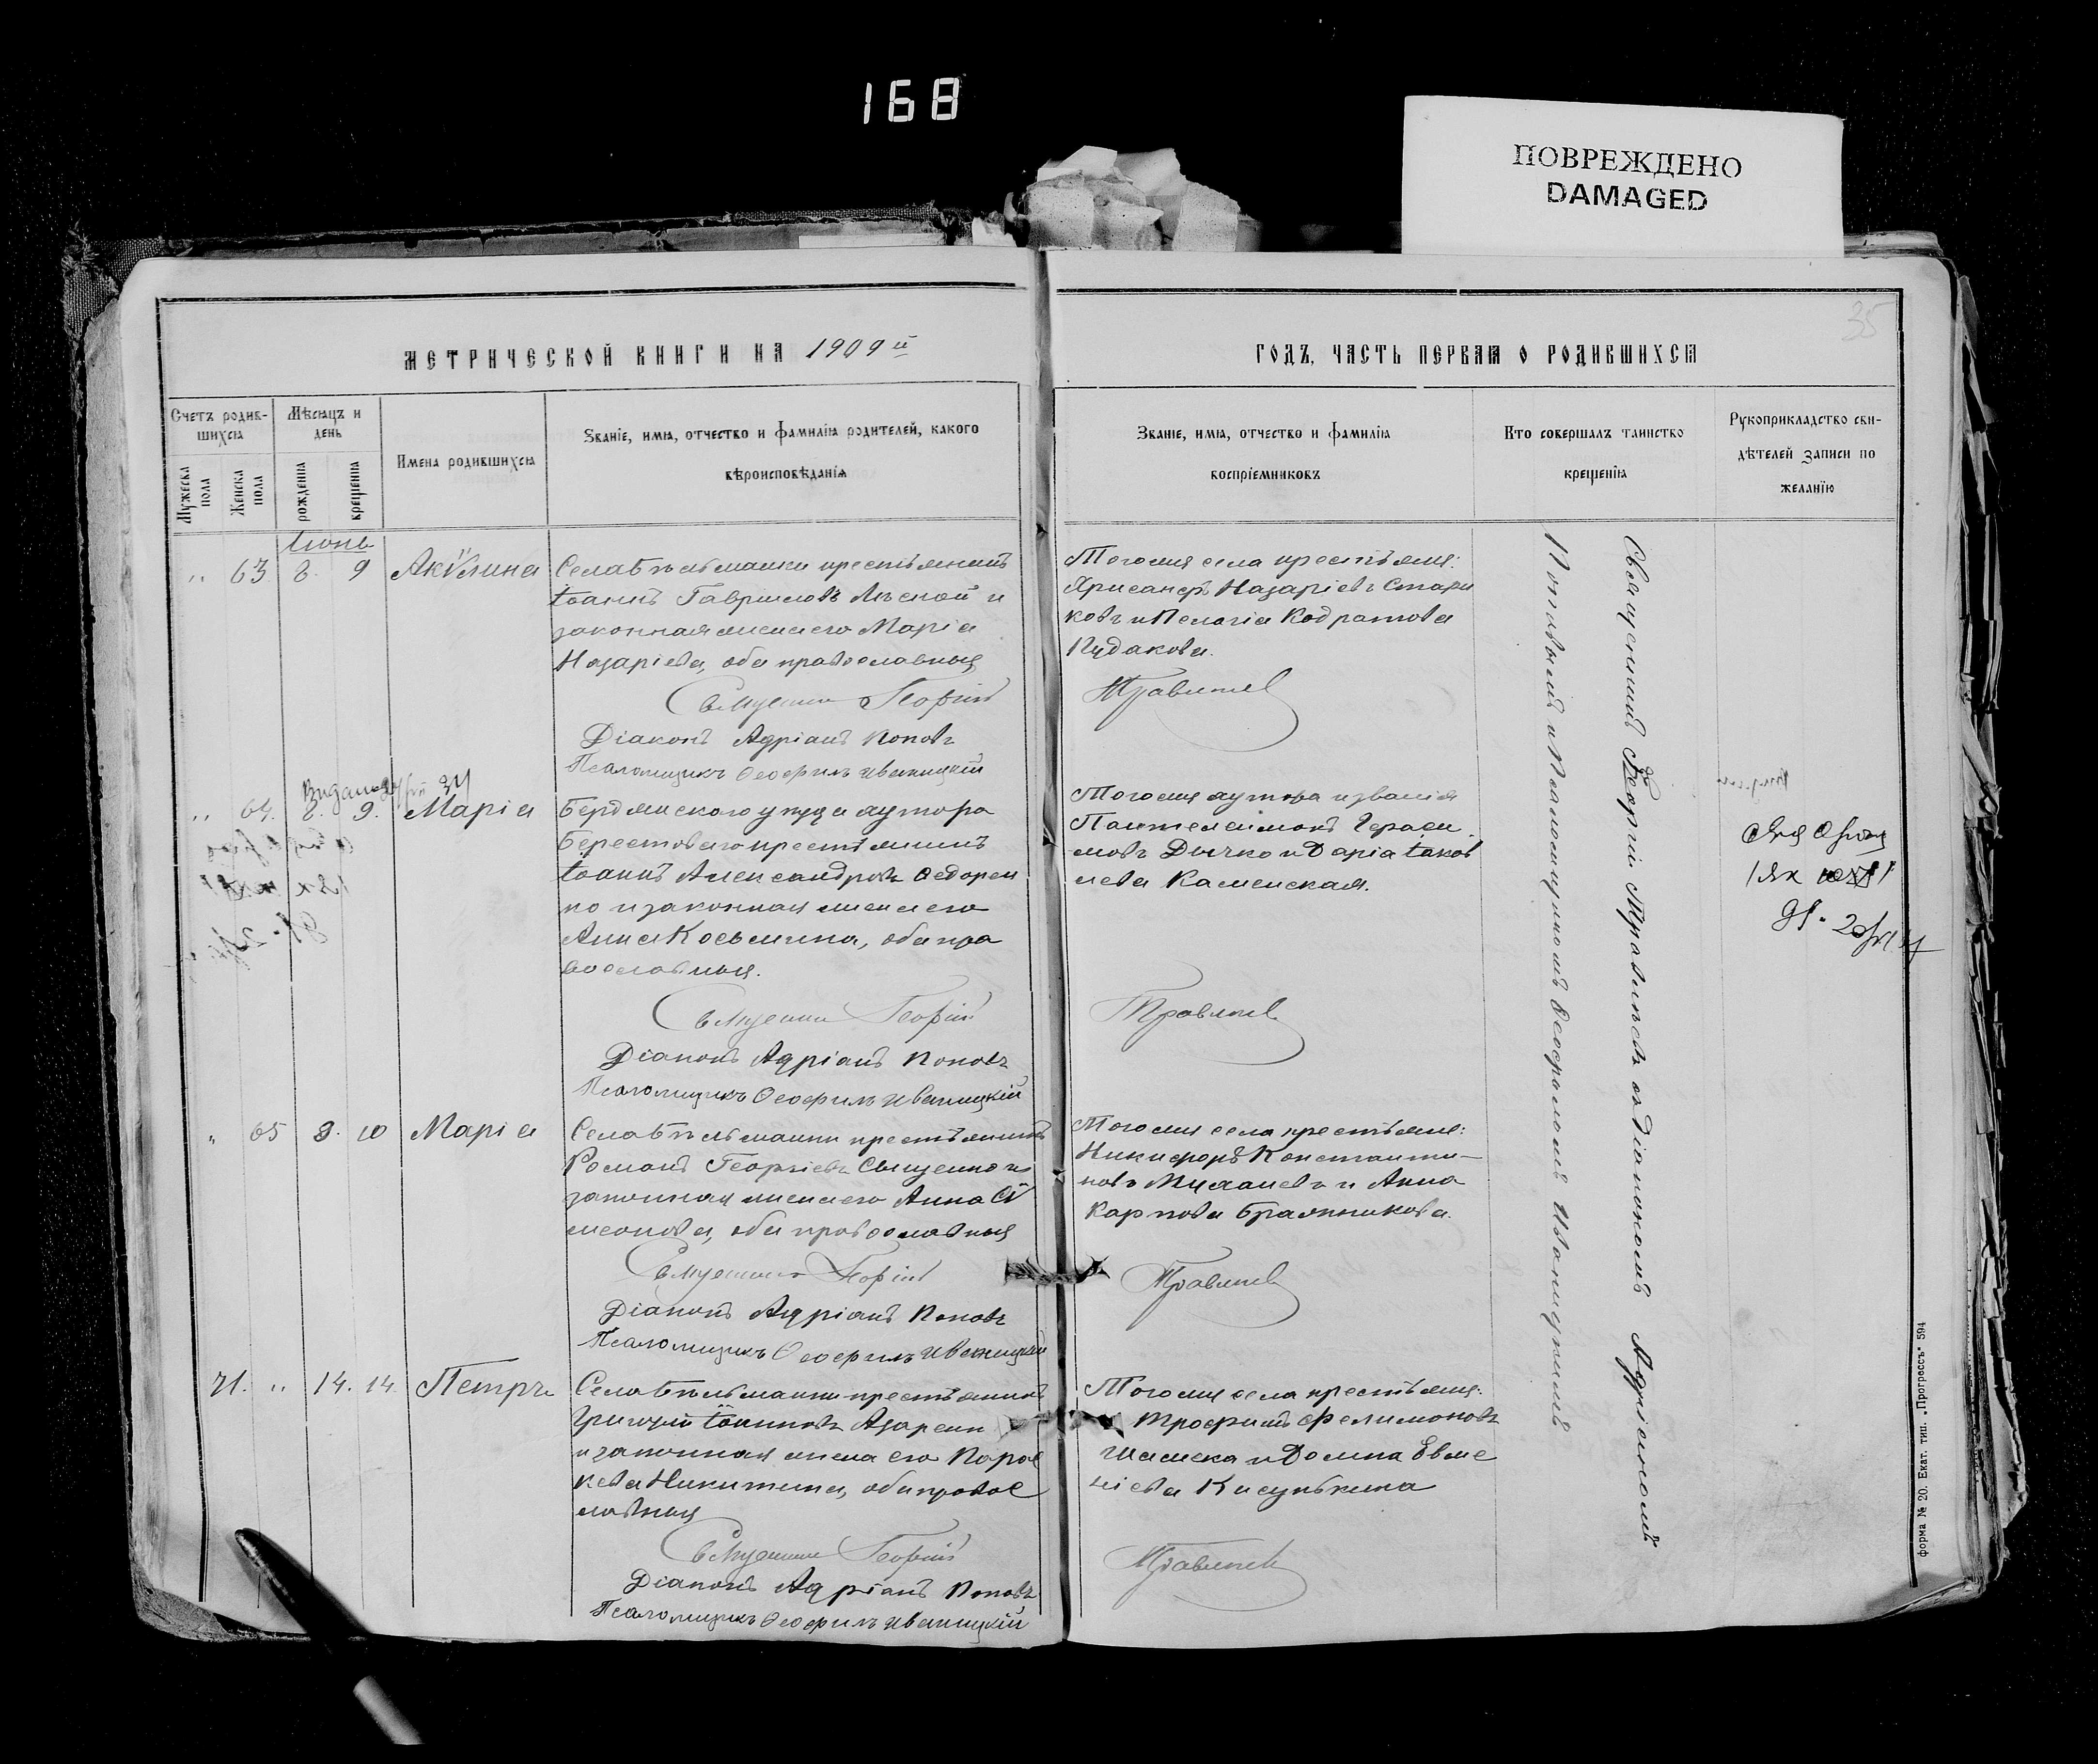 168
ПОВРЕЖДЕНО
DAMAGED
35
МЕТРИЧЕСКОЙ КНИГИ НА 1909й
ГОДЪ, ЧАСТЬ ПЕРВАЯ О РОДИВШИХСЯ
Счетъ родив-
шихся
Мужеска пола
Женска пола
Мѣсяцъ и
день
рожденія
крещенія
Имена родившихся
Званіе, имя, отчество и фамилія родителей, какого
вѣроисповѣданія
Званіе, имя, отчество и фамилія
воспріемниковъ
Кто совершалъ таинство
крещенія
Рукоприкладство сви-
дѣтелей записи по
желанію
Іюнь
" 63 8. 9 Акѵлина
Села Бѣльманки крестьянинъ
Іоаннъ Гавриловъ Лѣской и
законная жена его Марія
Назаріева, оба православныя
Священникъ Георгій
Діаконъ Адріанъ Поповъ
Псаломщикъ Ѳеофилъ Иваницкій
Того же села крестьяне:
Хрисанфъ Назаріевъ Стари
ковъ и Пелагія Кодратова
Кудакова.
Травинев
" 64. 8. 9. Марія
Бердянскаго уѣзда хутора
Берестоваго крестьянинъ
Іоаннъ Александровъ Ѳедорен
ко и законная жена его
Анна Косьмина, оба пра
вославныя.
Священникъ Георгій
Діаконъ Адріанъ Поповъ
Псаломщикъ Ѳеофилъ Иваницкій
Того же хутора и званія
Пантелеимонъ Гераси
мовъ Дычко и Дарія Іаков
лева Каменская.
Травинев
" 65 8. 10 Марія
Села Бѣльманки крестьянинъ
Романъ Георгіевъ Сыщенко и
законная жена его Анна Сѵ
меонова, оба православныя
Священникъ Георгій
Діаконъ Адріанъ Поповъ
Псаломщикъ Ѳеофилъ Иваницкій
Того же села крестьяне:
Никифоръ Константи-
новъ и Анна
Карпова Бражникова.
Травинев
71. " 14. 14. Петръ
Села Бѣльманки крестьянинъ
Григорій Іоанновъ Азарени
и законная жена его Парас
кева Никитина, оба правос
лавныя
Священникъ Георгій
Діаконъ Адріанъ Поповъ
Псаломщикъ Ѳеофилъ Иваницкій
Того же села крестьяне:
Трофимъ Филимоновъ
Шамека и Домна Евме
ніева
Травинев
Священникъ Георгій Травиневъ съ Діакономъ Адріаномъ
Поповымъ и Псаломщикомъ Ѳеофиломъ Иваницкимъ
форма № 20. Екат. тип. „Прогрессъ" 594